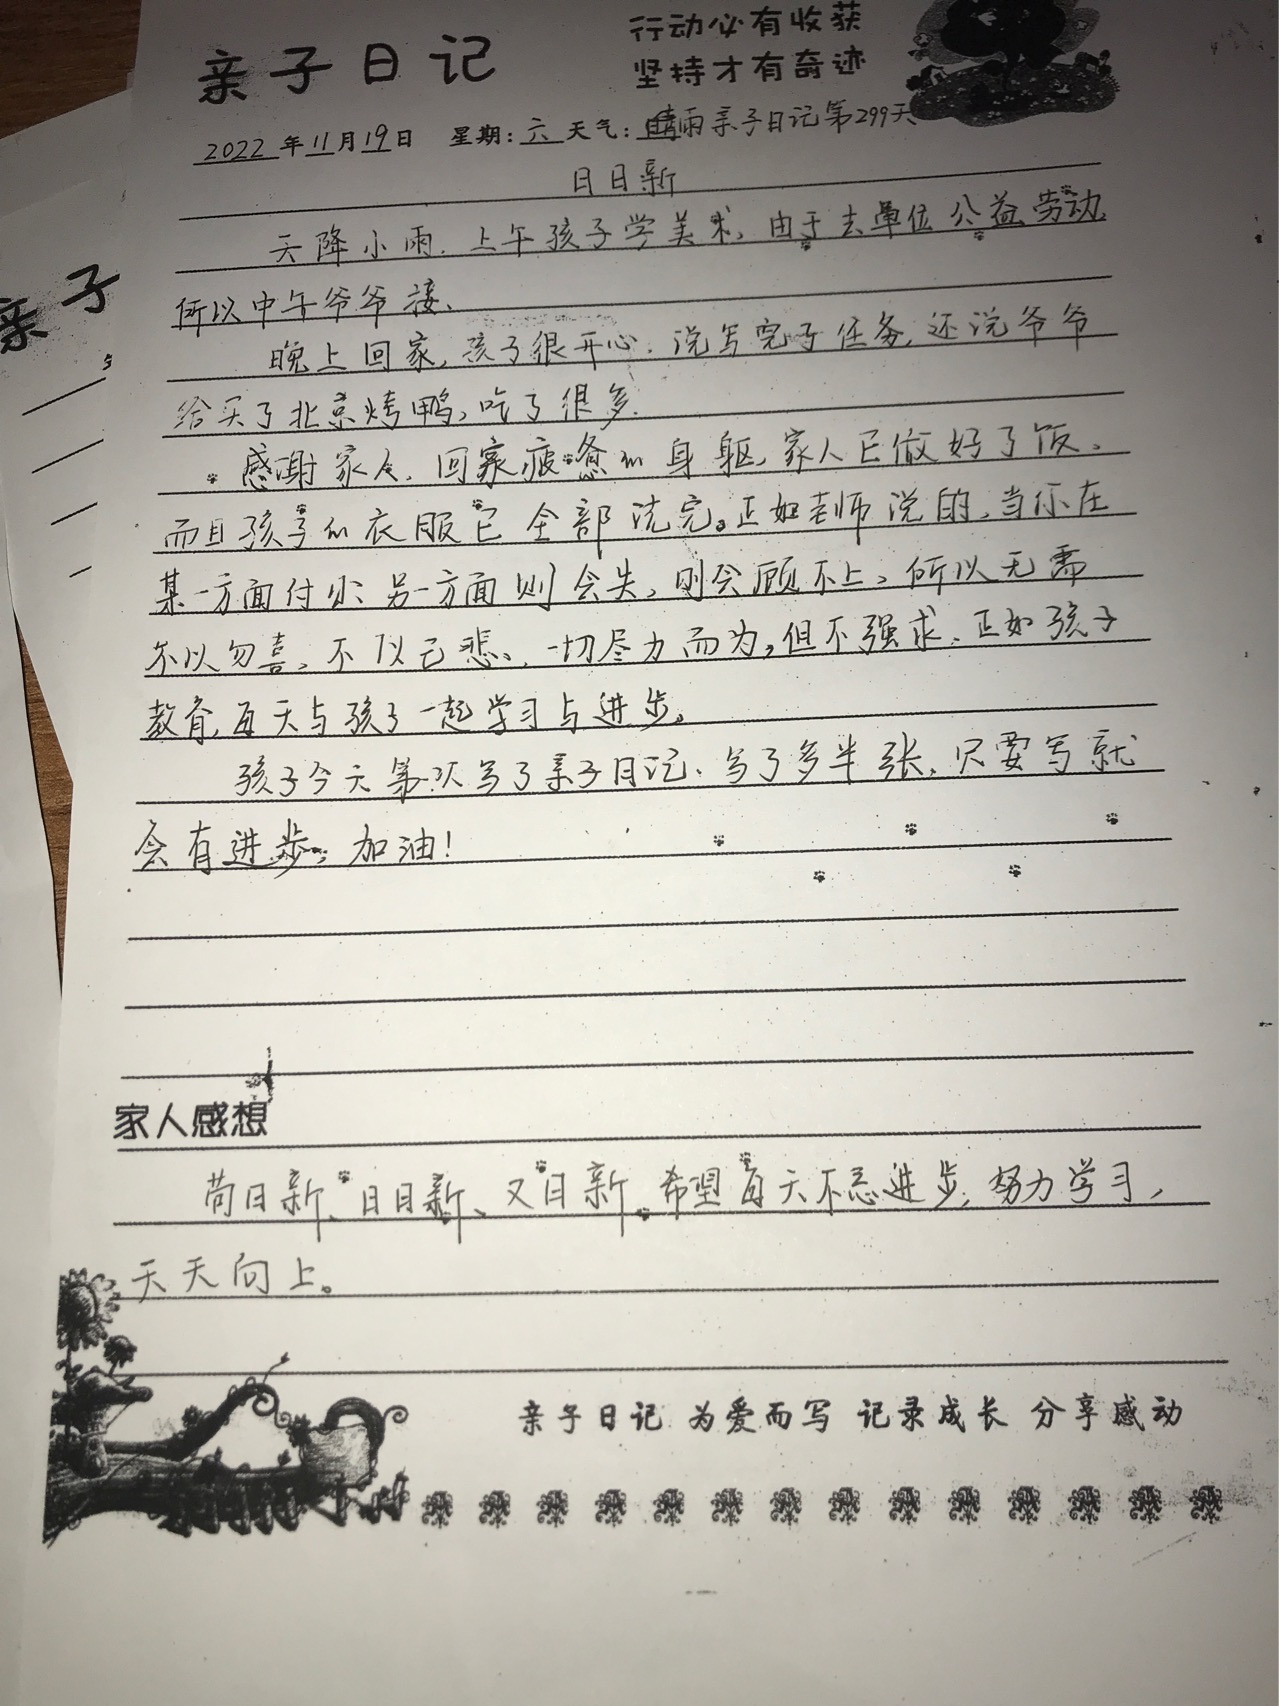 亲子日记
行动必有收获
坚持才有奇迹
2022年11月19日 星期:六 天气:雨 亲子日记第299天
日日新
天降小雨.上午孩子学美术,由于去单位公益劳动
所以中午爷爷接、
晚上回家,孩子很开心.说写完了任务,还说爷爷
给买了北京烤鸭,吃了很多.
感谢家人.回家疲惫的身躯,家人已做好了饭、
而且孩子的衣服已全部洗完。正如老师说的,当你在
某一方面付出、另一方面则会失,则会顾不上,所以无需
不以勿喜,不以己悲、一切尽力而为,但不强求.正如孩子
教育,每天与孩子一起学习与进步。
孩子今天第一次写了亲子日记、写了多半张,只要写就
会有进步,加油!
家人感想
苟日新、日日新、又日新.希望每天不忘进步,努力学习,
天天向上。
亲子日记 为爱而写 记录成长 分享感动
亲子